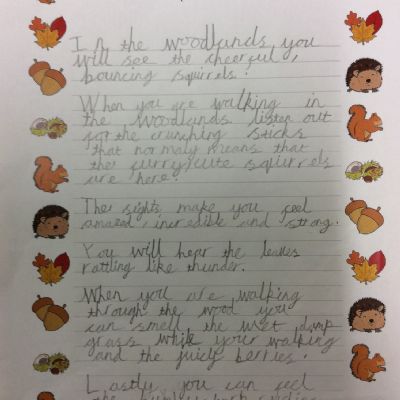 In the woodlands you
will see the cheerful,
bouncing squirrels.
When you are walking in
the woodlands listen out
for the crunching sticks
that normaly means that
the furry/cute squirrels
are here.
The sights make you feel
amazed, incredible and strong.
You will hear the leaves
rattling like thunder.
When you are walking
through the wood you
can smell the wet damp
grass while your walking
and the juicy berries.
Lastly you can feel
the bumby bark